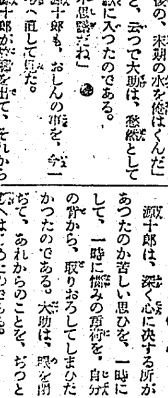 後の、末期の水を
と、云つて大助は、愁然として
に入つたのである。
不思議だね」
源十郎も、おしんの事を、今一
へ直して見た。
十郎が を出て、それから
源十郎は、深く心に決する所が
あつたのか苦しい思ひを、一時に
して、一時に惱みの重荷を、自分
の背から、取りおろしてしまひた
かつたのである。大助は、眼を閉
ぢて、あれからのことを、ぢつと